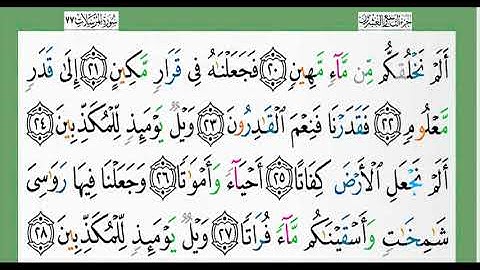 سُورَةُ الْمُرْسَلَاتِ ٧٧
أَلَمْ نَخْلُقكُّم مِّن مَّآءٍ مَّهِينٍ ٢٠ فَجَعَلْنَٰهُ فِى قَرَارٍ مَّكِينٍ ٢١ إِلَىٰ قَدَرٍ
مَّعْلُومٍ ٢٢ فَقَدَرْنَا فَنِعْمَ الْقَٰدِرُونَ ٢٣ وَيْلٌ يَوْمَئِذٍ لِّلْمُكَذِّبِينَ ٢٤
أَلَمْ نَجْعَلِ الْأَرْضَ كِفَاتًا ٢٥ أَحْيَآءً وَأَمْوَٰتًا ٢٦ وَجَعَلْنَا فِيهَا رَوَٰسِىَ
شَٰمِخَٰتٍ وَأَسْقَيْنَٰكُم مَّآءً فُرَاتًا ٢٧ وَيْلٌ يَوْمَئِذٍ لِّلْمُكَذِّبِينَ ٢٨